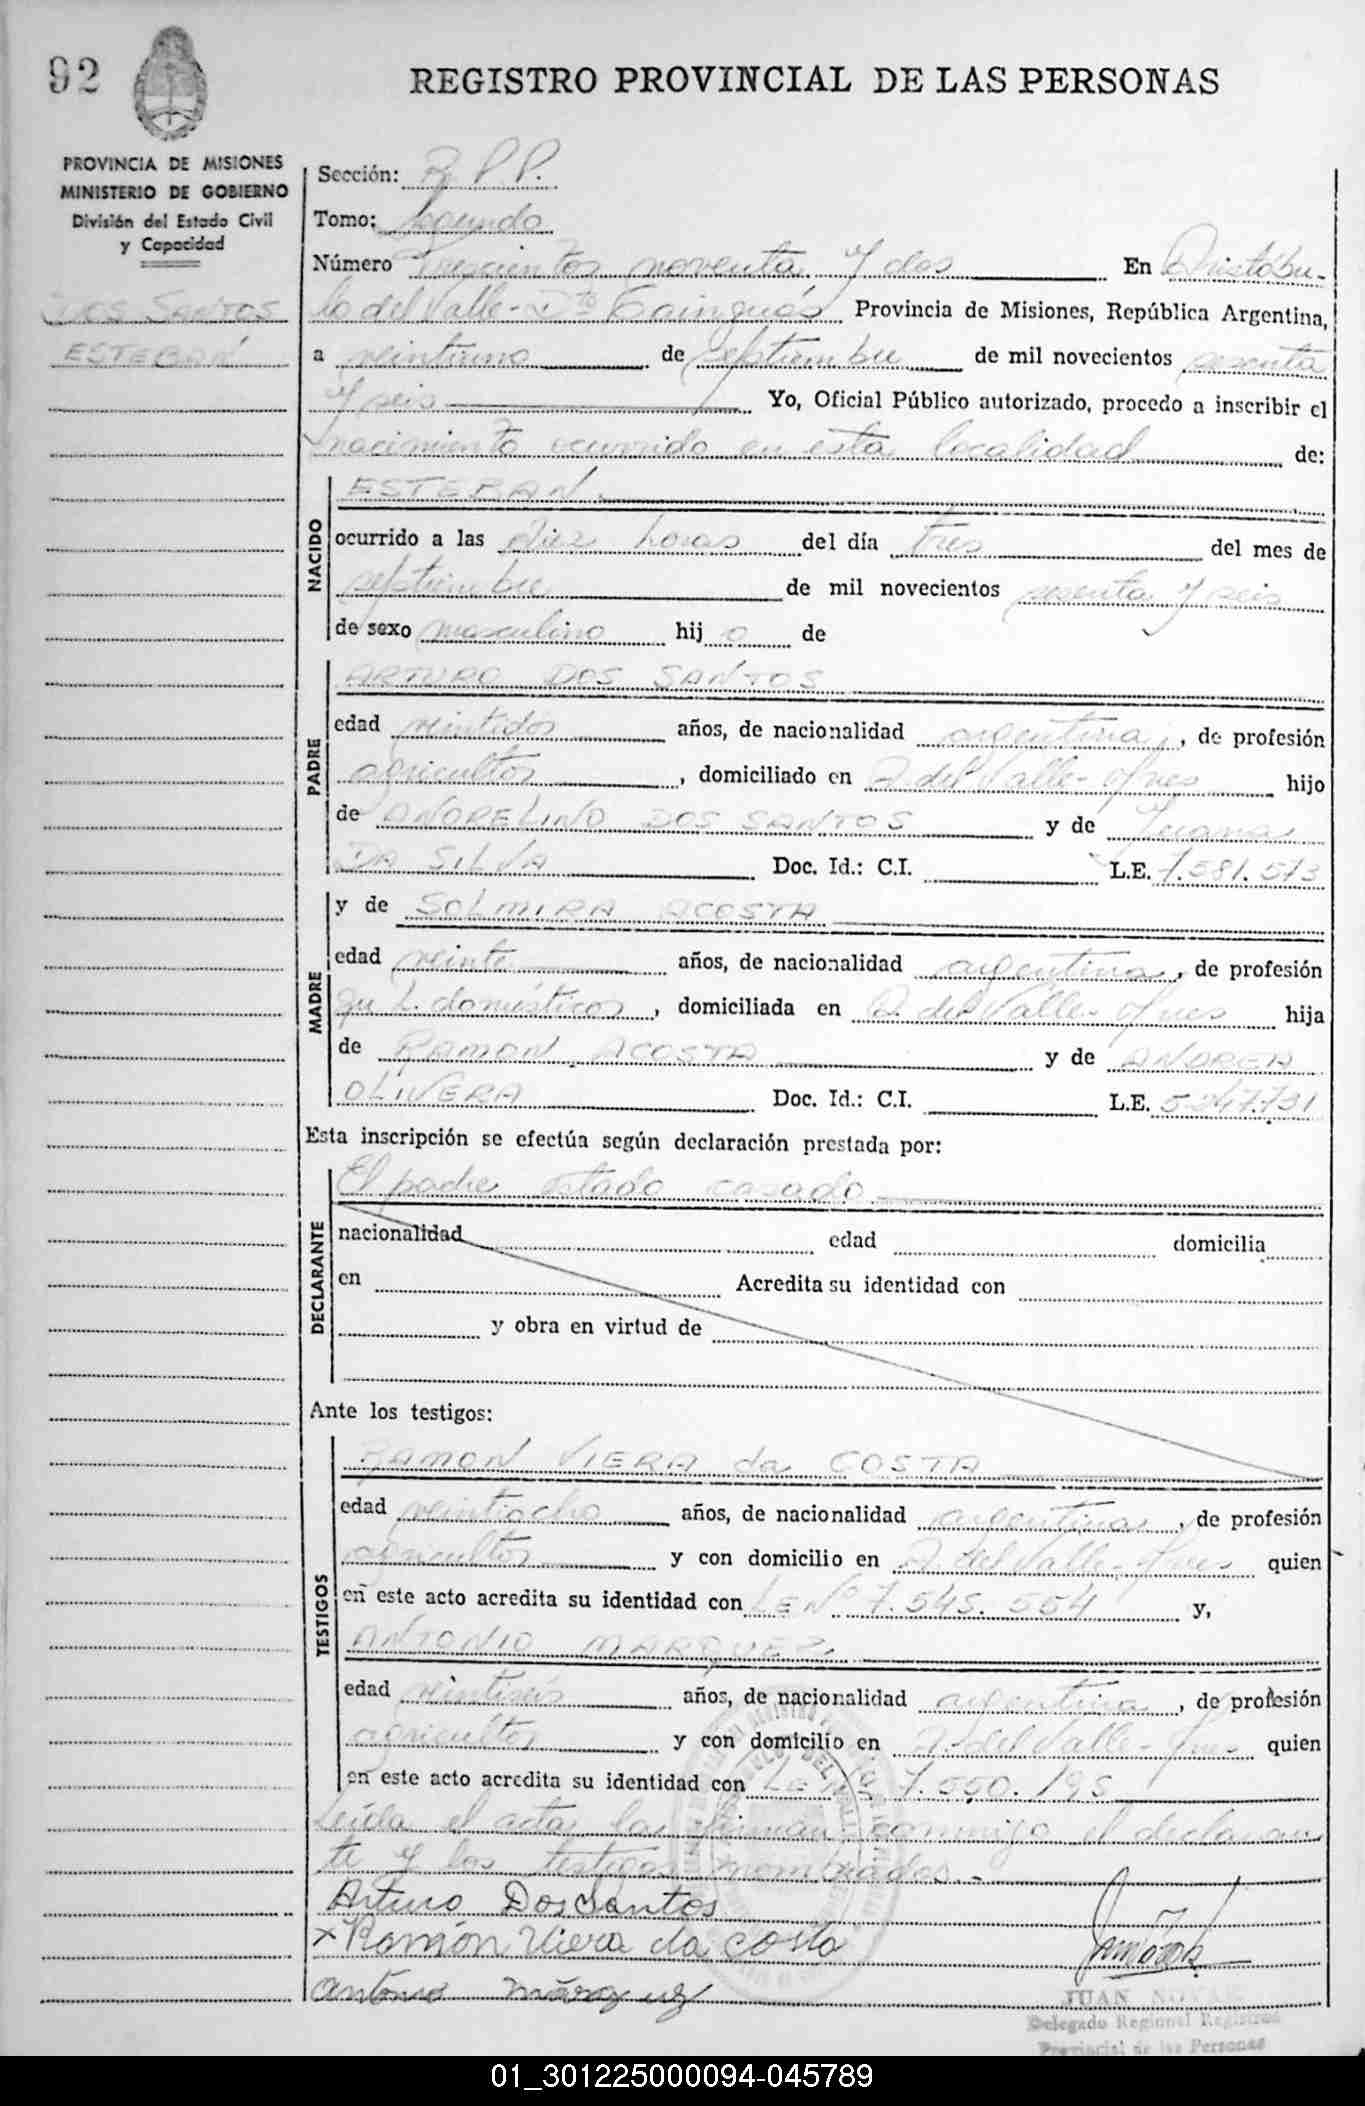 92
REGISTRO PROVINCIAL DE LAS PERSONAS
PROVINCIA DE MISIONES
MINISTERIO DE GOBIERNO
División del Estado Civil
y Capacidad
DOS SANTOS
ESTEBAN
Sección: R.P.P.
Tomo: Segundo
Número Trescientos noventa y dos En Aristóbu-
lo del Valle - Dto Cainguás Provincia de Misiones, República Argentina,
a veintiuno de septiembre de mil novecientos sesenta
y seis Yo, Oficial Público autorizado, procedo a inscribir el
nacimiento ocurrido en esta localidad de:
NACIDO
ESTEBAN
ocurrido a las diez horas del día tres del mes de
septiembre de mil novecientos sesenta y seis
de sexo masculino hij o de
PADRE
ARTURO DOS SANTOS
edad veintidós años, de nacionalidad argentina, de profesión
agricultor, domiciliado en A. del Valle - Mnes hijo
de ANDRELINO DOS SANTOS y de Juana
DA SILVA Doc. Id.: C.I. L.E. 7.581.573
MADRE
y de SOLMIRA ACOSTA
edad veinte años, de nacionalidad argentina, de profesión
qu h. domésticos, domiciliada en A. del Valle - Mnes hija
de RAMON ACOSTA y de ANDREA
OLIVERA Doc. Id.: C.I. L.E. 5.247.731
Esta inscripción se efectúa según declaración prestada por:
DECLARANTE
El padre estado casado
nacionalidad edad domicilia
en Acredita su identidad con
y obra en virtud de
Ante los testigos:
TESTIGOS
RAMON VIERA da COSTA
edad veintiocho años, de nacionalidad argentina, de profesión
agricultor y con domicilio en A. del Valle, Mnes quien
en este acto acredita su identidad con LE Nº 7.545.554 y,
ANTONIO MARQUEZ
edad veintiseis años, de nacionalidad argentina, de profesión
agricultor y con domicilio en A. del Valle - Mnes quien
en este acto acredita su identidad con LE Nº 7.550.195
Leída el acta, la firman conmigo el declaran
te y los testigos nombrados.-
Arturo Dos Santos
x Ramón Viera da costa
antonio márquez
JUAN
Delegado Regional Registro
Provincial de las Personas
01_301225000094-045789